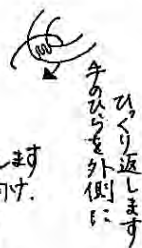 ひっくり返します
手のひらを外側に
します
け.